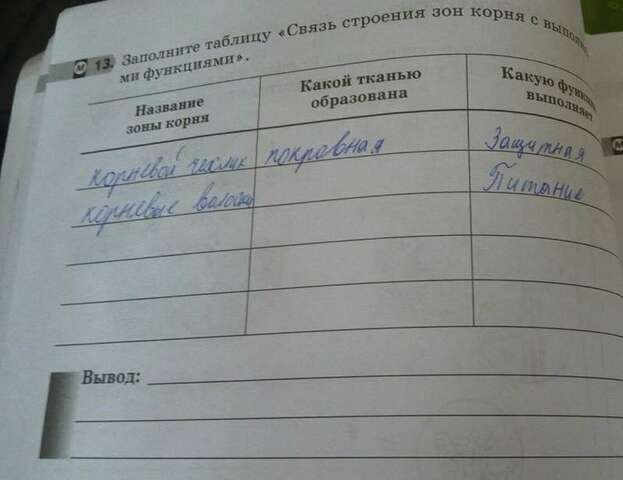 13. Заполните таблицу «Связь строения зон корня с выполн
ми функциями».
Название
зоны корня
Какой тканью
образована
Какую функ
выполняет
корневой чехлик
покровная
Защитная
корневые волоски
Питание
Вывод: